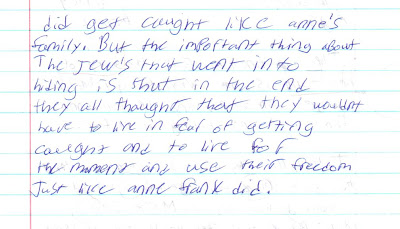 did get caught like anne's
family. But the important thing about
The Jew's that went into
hiding is that in the end
they all thought that they wouldnt
have to live in fear of getting
caught and to live for
the moment and use their freedom
Just like anne frank did.